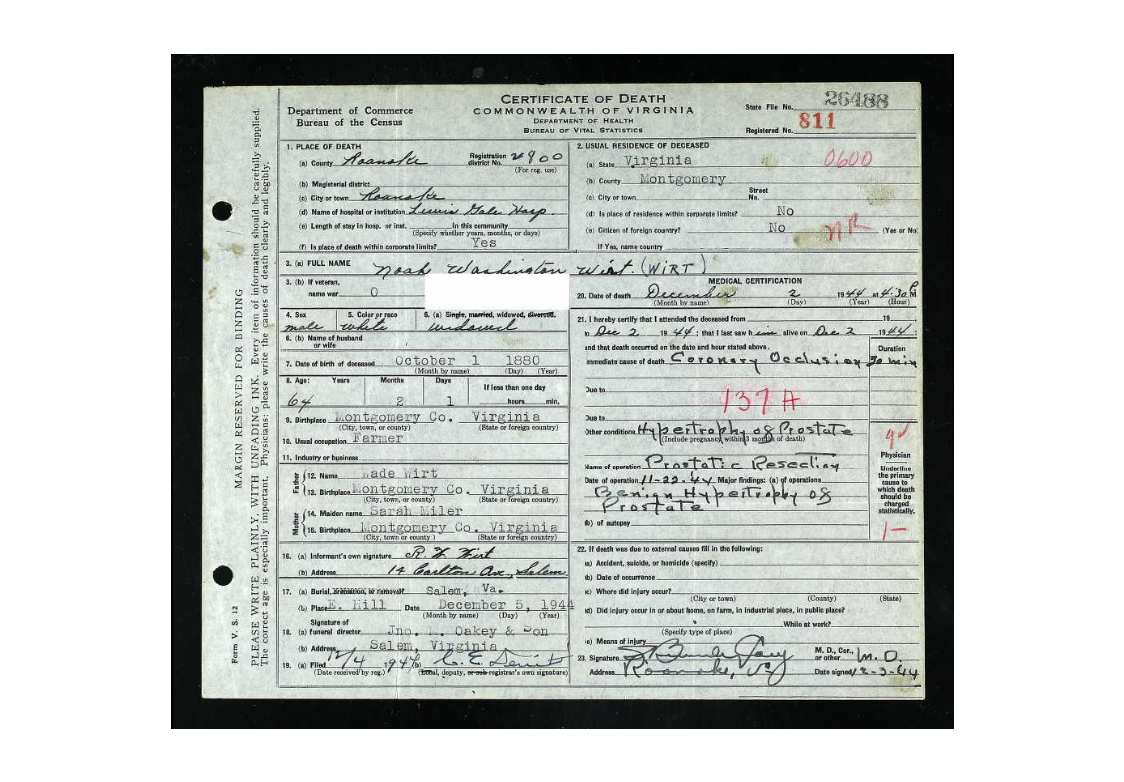 CERTIFICATE OF DEATH
COMMONWEALTH OF VIRGINIA
DEPARTMENT OF HEALTH
BUREAU OF VITAL STATISTICS
Department of Commerce
Bureau of the Census
State File No. 26488
Registered No. 811
1. PLACE OF DEATH
(a) County Roanoke Registration district No. 2900
(For reg. use)
(b) Magisterial district
(c) City or town Roanoke
(d) Name of hospital or institution Lewis Gale Hosp.
(e) Length of stay in hosp. or inst. In this community
(Specify whether years, months, or days)
(f) Is place of death within corporate limits? Yes
2. USUAL RESIDENCE OF DECEASED
(a) State Virginia 0600
(b) County Montgomery
(c) City or town Street No.
(d) Is place of residence within corporate limits? No
(e) Citizen of foreign country? No NR (Yes or No)
If Yes, name country
3. (a) FULL NAME Noah Washington Wirt. (WIRT)
3. (b) If veteran,
name war 0
4. Sex 5. Color or race 6. (a) Single, married, widowed, divorced.
male white widowed
6. (b) Name of husband
or wife
7. Date of birth of deceased October 1 1880
(Month by name) (Day) (Year)
8. Age: Years Months Days If less than one day
64 2 1 hours min.
9. Birthplace Montgomery Co. Virginia
(City, town, or county) (State or foreign country)
10. Usual occupation Farmer
11. Industry or business
Father
12. Name Wade Wirt
13. Birthplace Montgomery Co. Virginia
(City, town, or county) (State or foreign country)
Mother
14. Maiden name Sarah Miler
15. Birthplace Montgomery Co. Virginia
(City, town or county) (State or foreign country)
16. (a) Informant's own signature R. W. Wirt
(b) Address 14 Carlton Av., Salem
17. (a) Burial, cremation, or removal? Salem, Va.
(b) Place E. Hill Date December 5, 1944
(Month by name) (Day) (Year)
Signature of
18. (a) funeral director Jno. Oakey & Son
(b) Address Salem, Virginia
19. (a) Filed 12/4 1944 (b)
(Date received by reg.) (Local, deputy, or sub-registrar's own signature)
MEDICAL CERTIFICATION
20. Date of death December 2 1944 at 4:30 P M
(Month by name) (Day) (Year) (Hour)
21. I hereby certify that I attended the deceased from 19
to Dec 2 1944; that I last saw him alive on Dec 2 1944;
and that death occurred on the date and hour stated above. Duration
Immediate cause of death Coronary Occlusion 30 min
Due to
137 A
Due to
Other conditions Hypertrophy of Prostate
(Include pregnancy within 3 months of death)
Name of operation Prostatic Resection
Date of operation 11-22-44 Major findings: (a) of operations
Benign Hypertrophy of
Prostate
(b) of autopsy
Physician
Underline
the primary
cause to
which death
should be
charged
statistically.
22. If death was due to external causes fill in the following:
(a) Accident, suicide, or homicide (specify)
(b) Date of occurrence
(c) Where did injury occur?
(City or town) (County) (State)
(d) Did injury occur in or about home, on farm, in industrial place, in public place?
While at work?
(Specify type of place)
(e) Means of injury
23. Signature M. D., Cor., or other M.D.
Address Roanoke, Va Date signed 12-3-44
Form V. S. 12
MARGIN RESERVED FOR BINDING
PLEASE WRITE PLAINLY, WITH UNFADING INK. Every item of information should be carefully supplied.
The correct age is especially important. Physicians: please write the causes of death clearly and legibly.